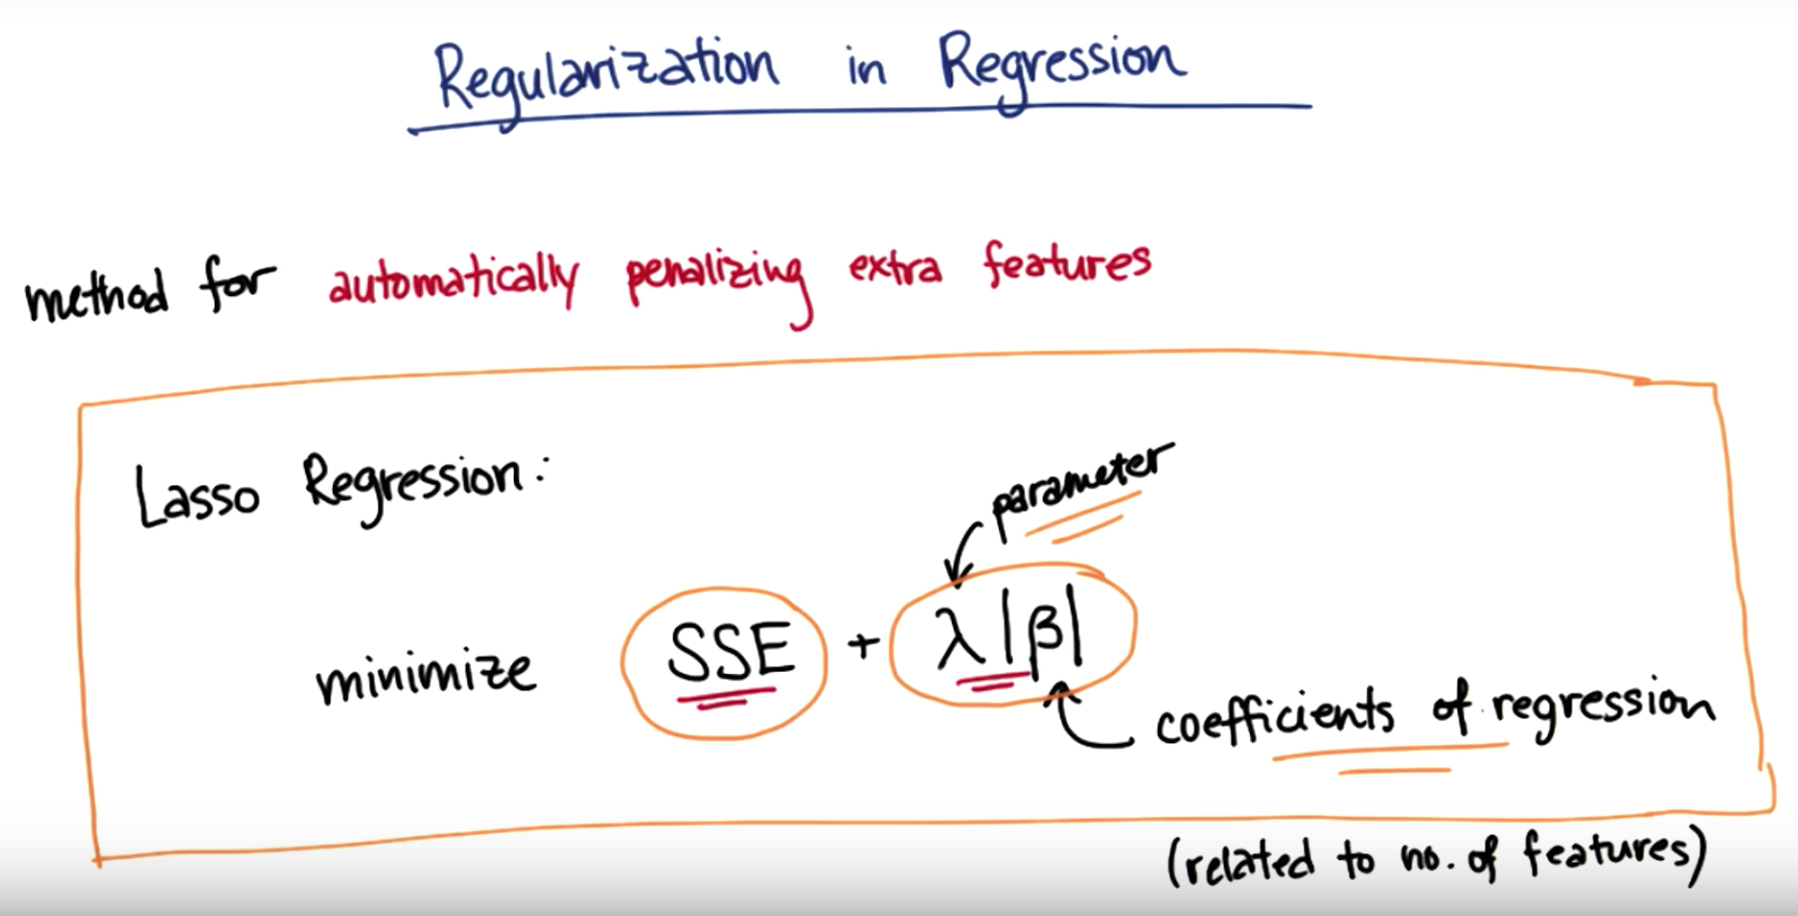 Regularization in Regression
method for automatically penalizing extra features
Lasso Regression:
parameter
minimize SSE + λ|β|
coefficients of regression
(related to no. of features)